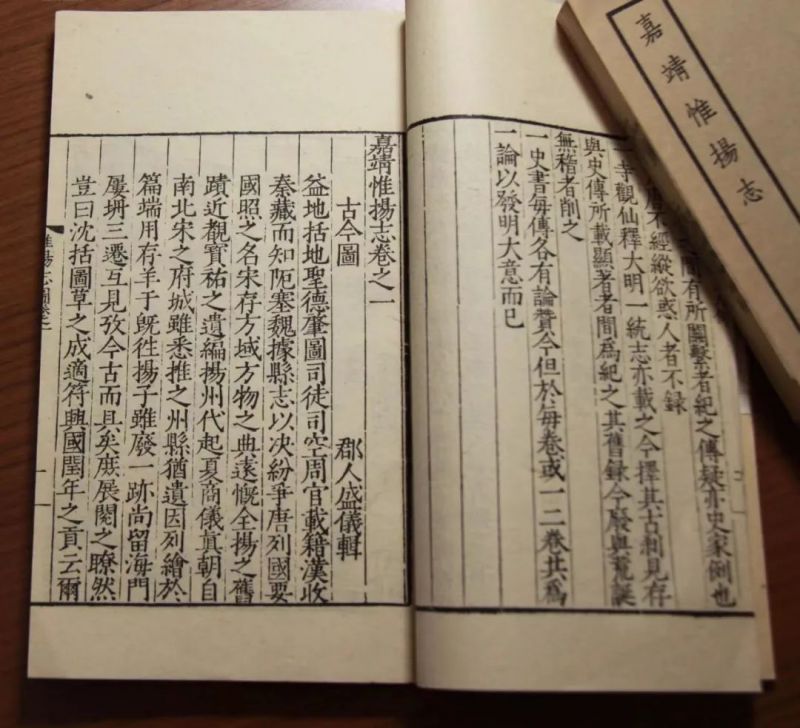 嘉靖惟揚志
間有所關繫者紀之傳疑亦史家例也
唐不經縱欲惑人者不錄
一寺觀仙釋大明一統志亦載之今擇其古刹見存
與史傳所載顯著者間爲紀之其舊錄今廢與荒誕
無稽者削之
一史書每傳各有論贊今但於每卷或一二卷共爲
一論以發明大意而已
嘉靖惟揚志卷之一
古今圖 郡人盛儀輯
益地括地聖德肇圖司徒司空周官載籍漢收
秦藏而知阨塞魏據縣志以决紛爭唐列國要
國照之名宋存方域方物之典遠慨全揚之舊
蹟近觀寶祐之遺編揚州代起夏商儀真朝自
南北宋之府城雖悉推之州縣猶遺因列繪於
篇端用存羊于旣徃揚子雖廢一跡尚留海門
屢坍三遷互見攷今古而具矣庶展閱之瞭然
豈曰沈括圖草之成適符興國閏年之貢云爾